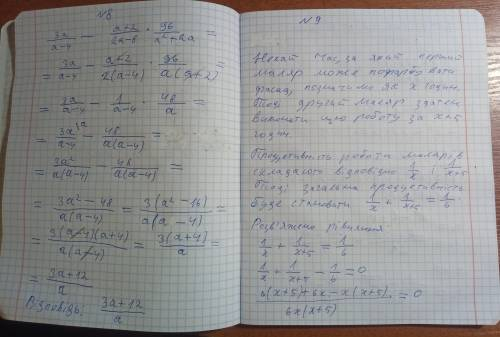 N8
3a/(a-4) - (a+2)/(2a-8) · 96/(a²+2a) =
= 3a/(a-4) - (a+2)/(2(a-4)) · 96/(a(a+2)) =
= 3a/(a-4) - 1/(a-4) · 48/a =
= 3a^a/(a-4) - 48/(a(a-4)) =
= 3a²/(a(a-4)) - 48/(a(a-4)) =
= (3a²-48)/(a(a-4)) = 3(a²-16)/(a(a-4)) =
= 3(a-4)(a+4)/(a(a-4)) = 3(a+4)/a =
= (3a+12)/a
Відповідь: (3a+12)/a
N9
Нехай час, за який перший
маляр може пофарбувати
фасад, позначимо як x годин.
Тоді другий маляр здатен
виконати цю роботу за x+5
годин.
Продуктивність роботи малярів
складає відповідно 1/x і 1/(x+5).
Тоді, загальна продуктивність
буде становити 1/x + 1/(x+5) = 1/6
Розв'яжемо рівняння
1/x + 1/(x+5) = 1/6
1/x + 1/(x+5) - 1/6 = 0
(6(x+5)+6x-x(x+5))/(6x(x+5)) = 0